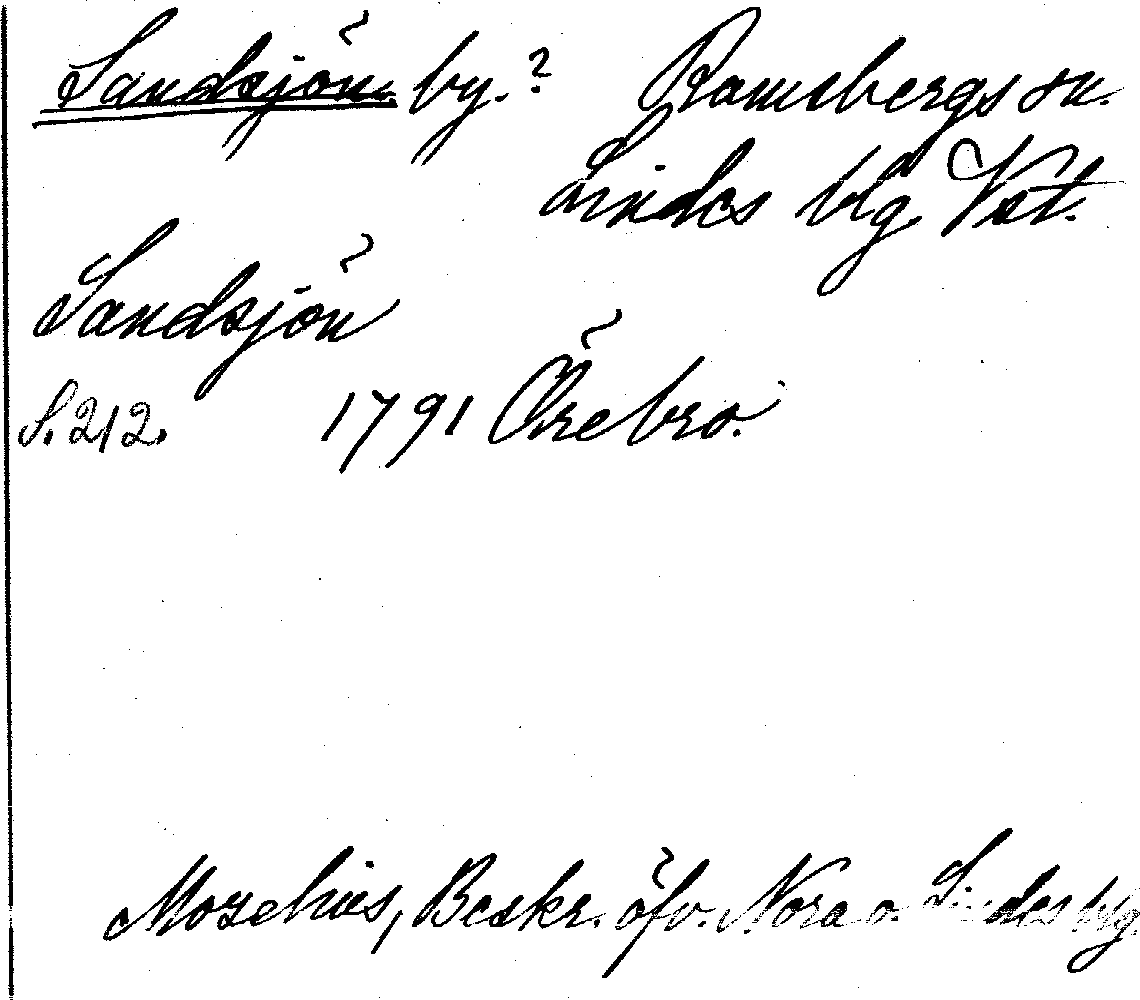 Sandsjön by.? Ramsbergs sn.
Lindes blg. Vstl.
Sandsjön
S. 212. 1791 Örebro.
Mozelius, Beskr. öfv. Nora o. Lindes blg.